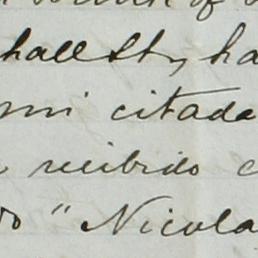 hall St, ha
mi citada
recibido c
do " Nicola